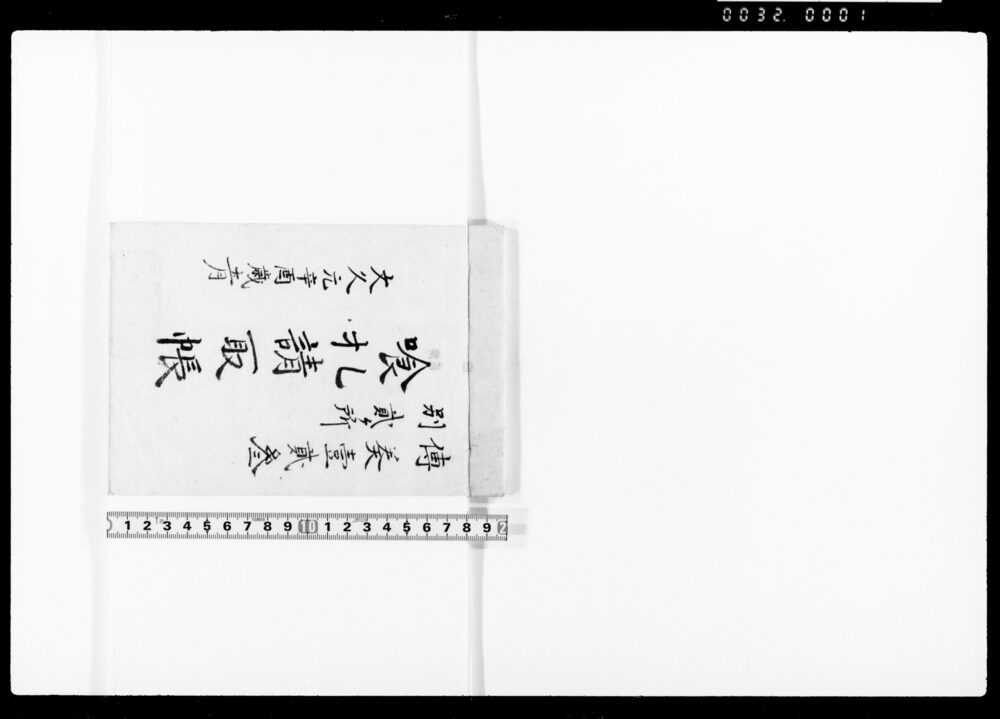 傳奏壹貳叄
別貳ヶ所
喰札請取帳
文久元辛酉歳月
0032. 0001
1 2 3 4 5 6 7 8 9 10 1 2 3 4 5 6 7 8 9 2